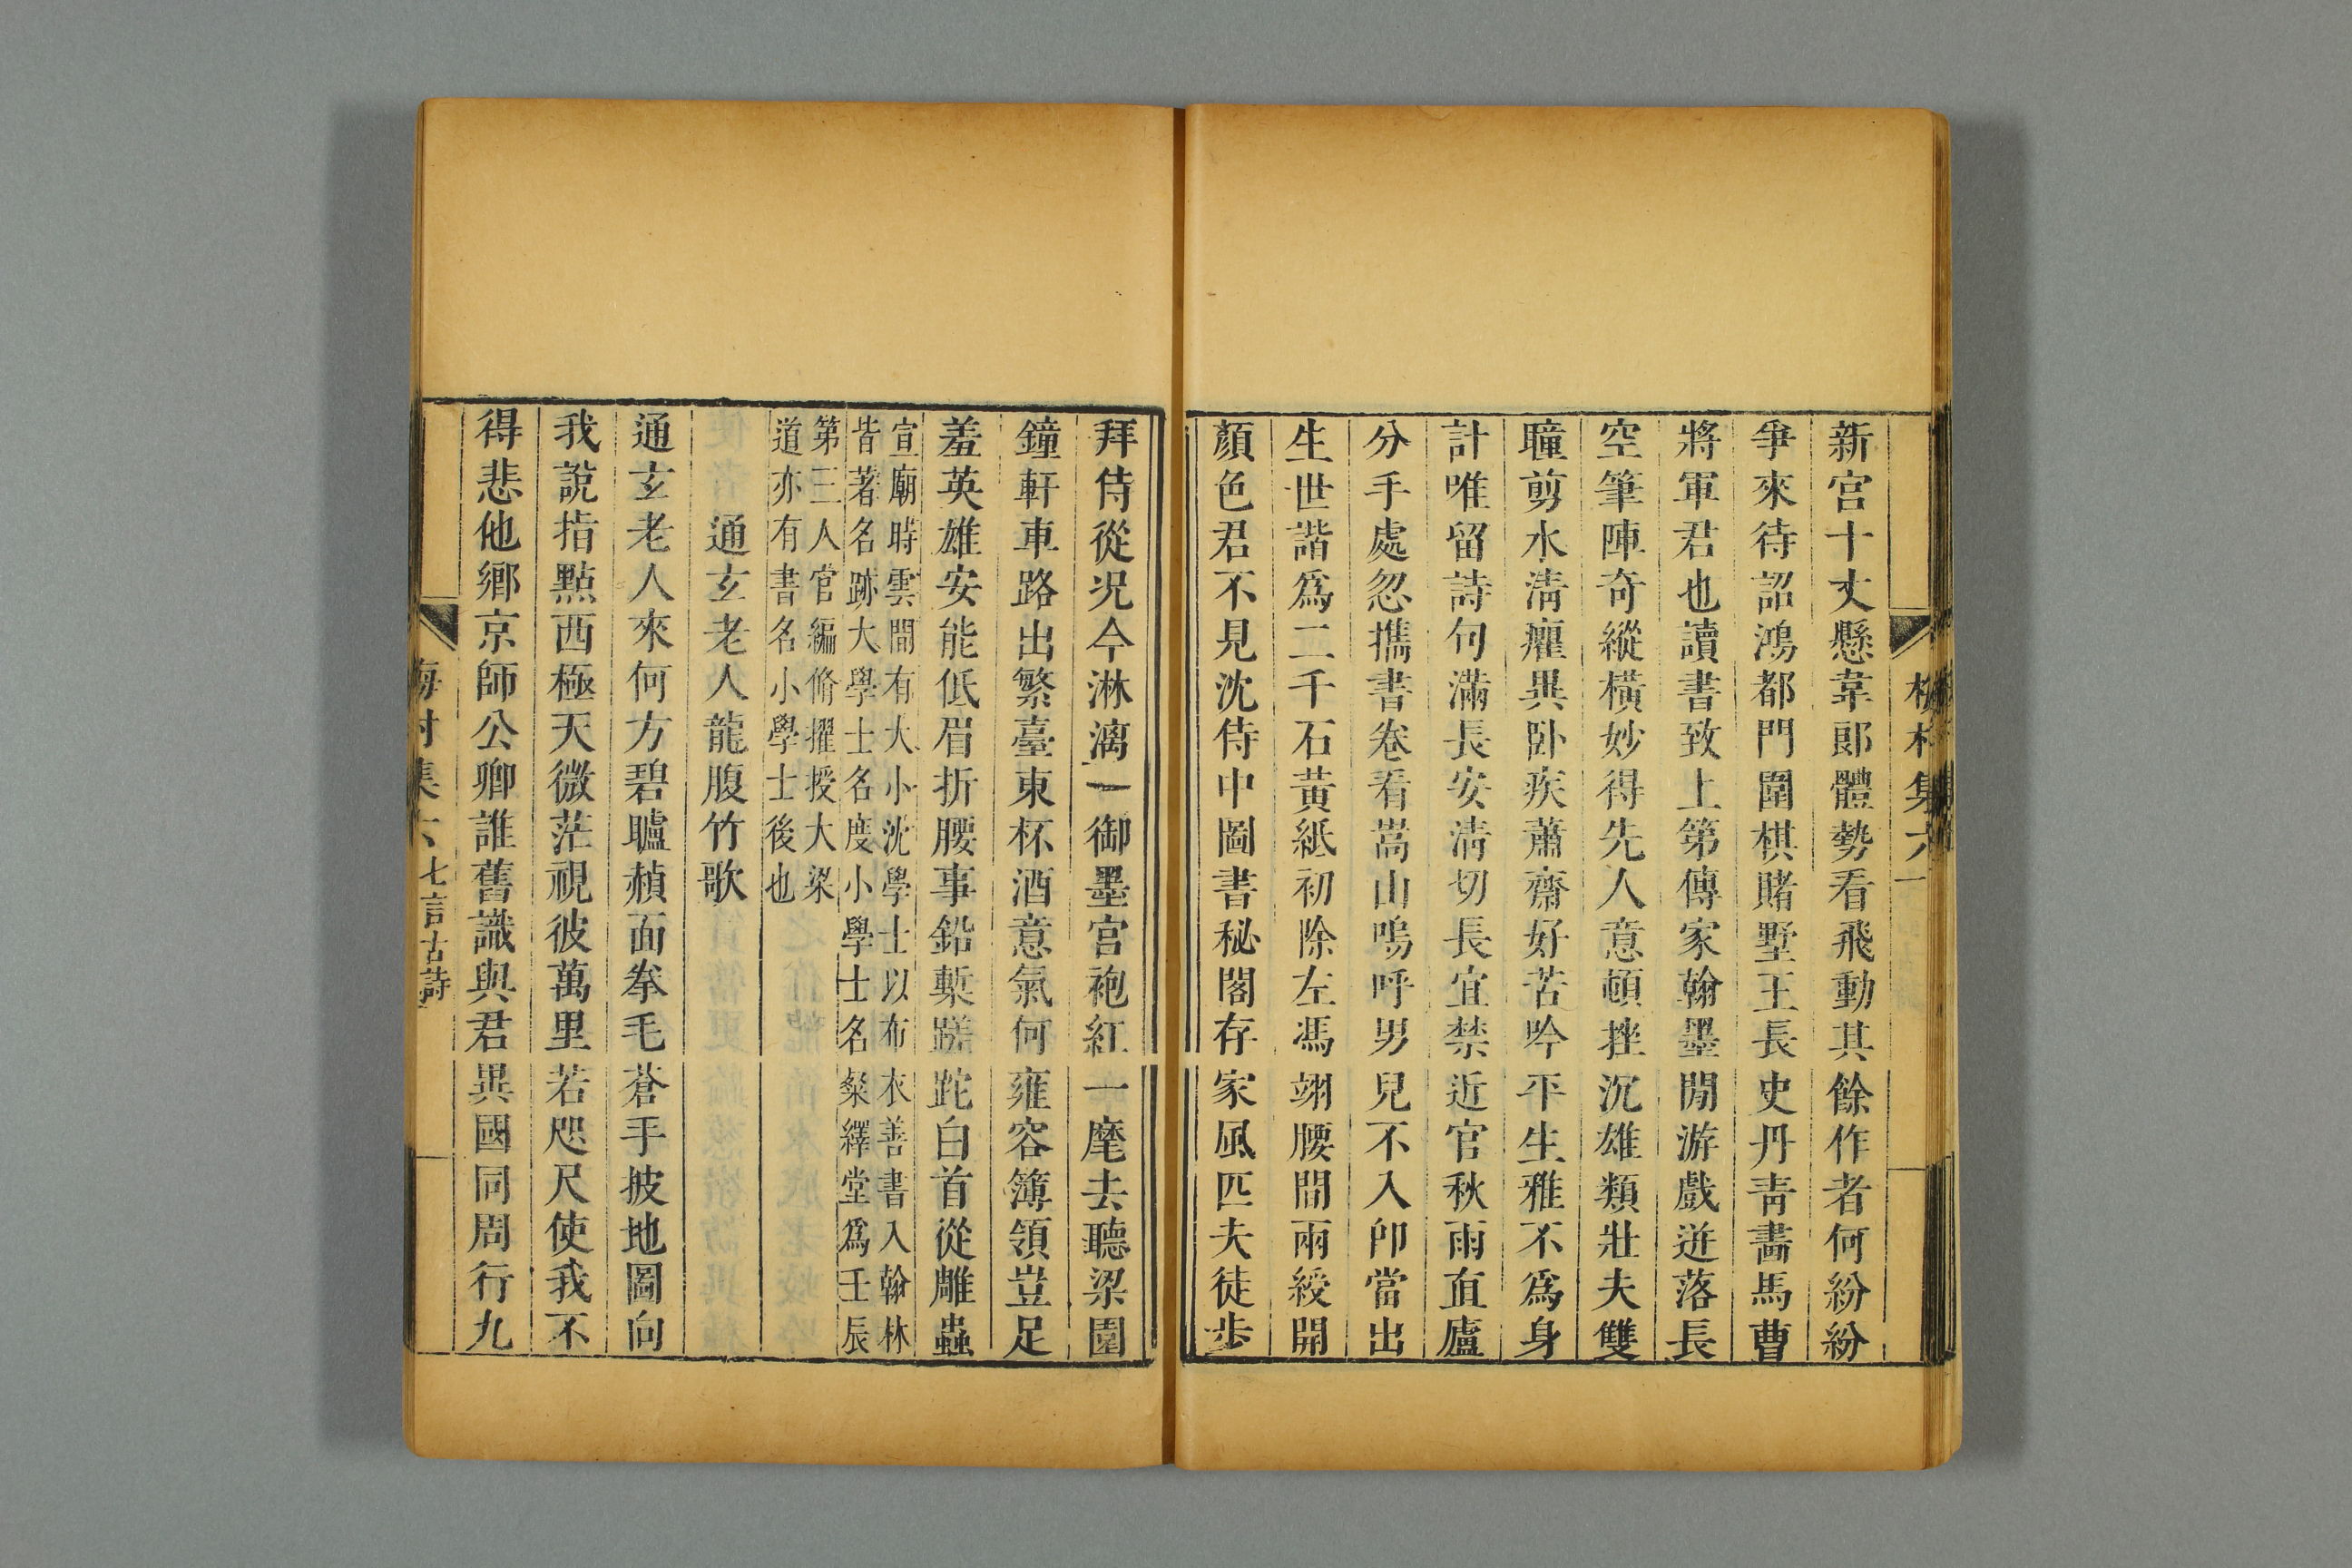 新宮十丈懸韋郞體勢看飛動其餘作者何紛紛
爭來待詔鴻都門圍棋賭墅王長史丹靑畵馬曹
將軍君也讀書致上第傳家翰墨閒游戲迸落長
空筆陣奇縱橫妙得先人意頓挫沉雄類壯夫雙
瞳剪水淸癯異卧疾蕭齋好苦吟平生雅不爲身
計唯留詩句滿長安淸切長宜禁近官秋雨直廬
分手處忽攜書卷看嵩山嗚呼男兒不入卽當出
生世諧爲二千石黃紙初除左馮翊腰間兩綬開
顏色君不見沈侍中圖書秘閣存家風匹夫徒步
拜侍從況今淋漓一御墨宮袍紅一麾去聽梁園
鐘軒車路出繁臺東杯酒意氣何雍容簿領豈足
羞英雄安能低眉折腰事鉛槧蹉跎白首從雕蟲
宣廟時雲間有大小沈學士以布衣善書入翰林
皆著名跡大學士名度小學士名粲繹堂爲壬辰
第三人官編脩擢授大梁
道亦有書名小學士後也
通玄老人龍腹竹歌
通玄老人來何方碧矑赬面拳毛蒼手披地圖向
我說指點西極天微茫視彼萬里若咫尺使我不
得悲他鄕京師公卿誰舊識與君異國同周行九
集六 七言古詩